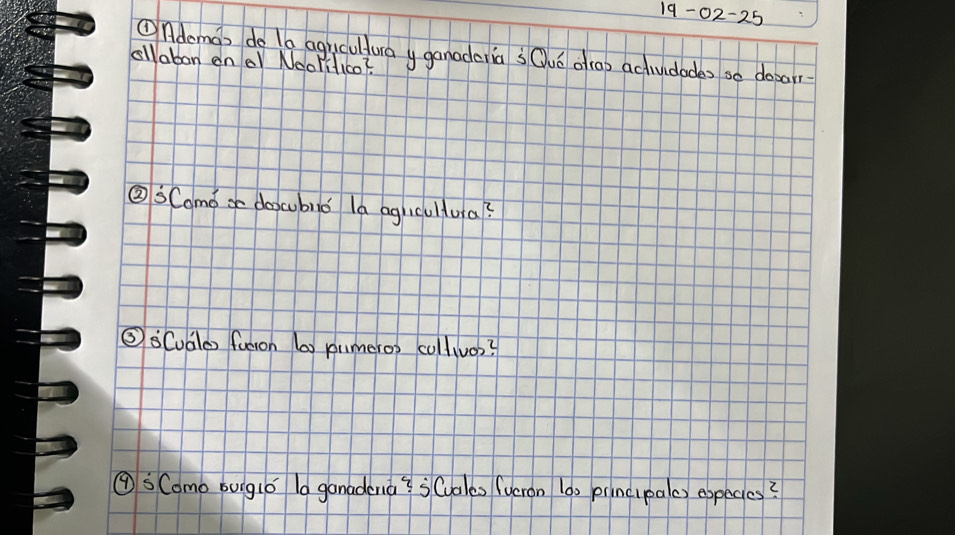 19-02-25
① Además de la agricultura y ganadería ¿Qué otras actividades se desarr-
ollaban en el Neolítico?
② ¿Comó se descubrió la agricultura?
③ ¿Cuáles fueron los primeros cultivos?
④ ¿Como surgió la ganadería? ¿Cuales fueron las principales especies?